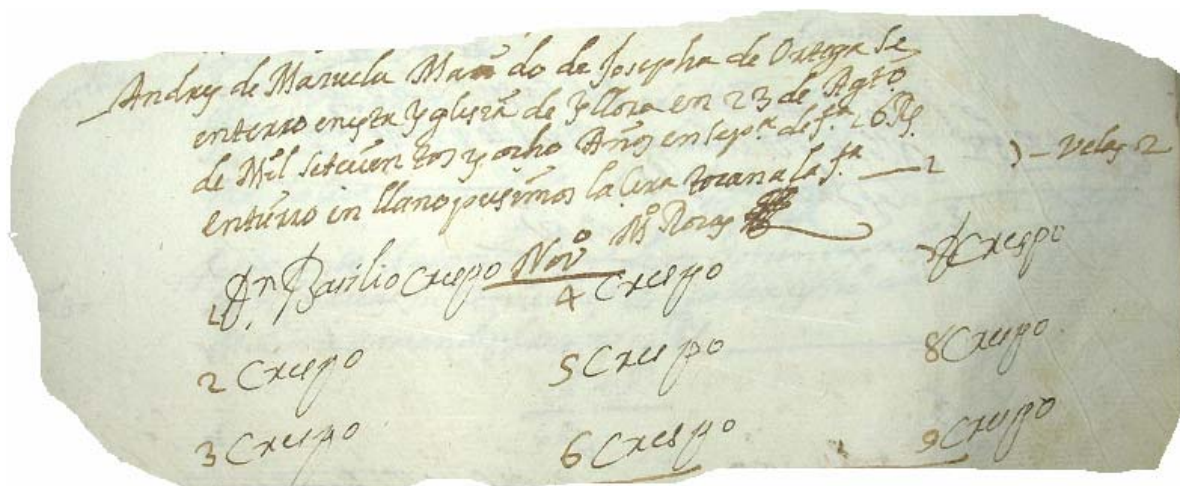 Andres de Mazuela Marido de Josepha de Ortega Se
enterro enesta Yglesia de Yllora en 23 de Agto
de Mil setecientos y ocho Años en sepra de fca 6 Rs
entierro en llano pusimos la Cera tocan a la fca — 2 ) – Velas 2
Mo Roxas
Novo
1 Dn Basilio Crespo 4 Crespo 7 Crespo
2 Crespo 5 Crespo 8 Crespo
3 Crespo 6 Crespo 9 Crespo